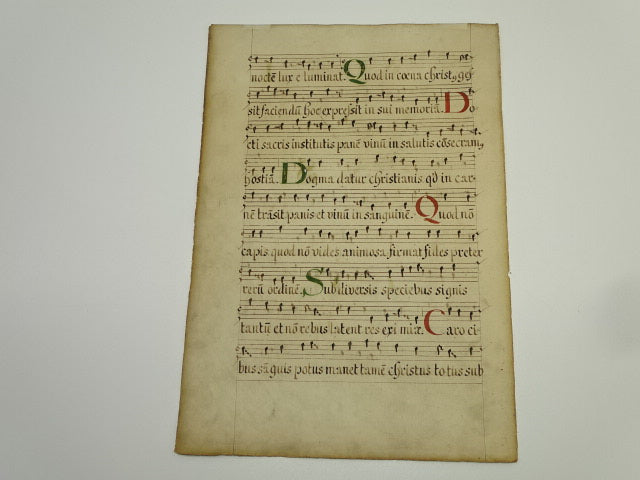 noctē lux e luminat. Quod in cœna christ9
sit faciendū hoc expressit in sui memoriā. Do
cti sacris institutis panē vinū in salutis cōsecram9
hostiā. Dogma datur christianis qd in car-
nē trāsit panis et vinū in sanguinē. Quod nō
capis quod nō vides animosa firmat fides preter
rerū ordinē. Sub diversis speciebus signis
tantū et nō rebus latent res eximiæ. Caro ci-
bus sāguis potus manet tamē christus totus sub